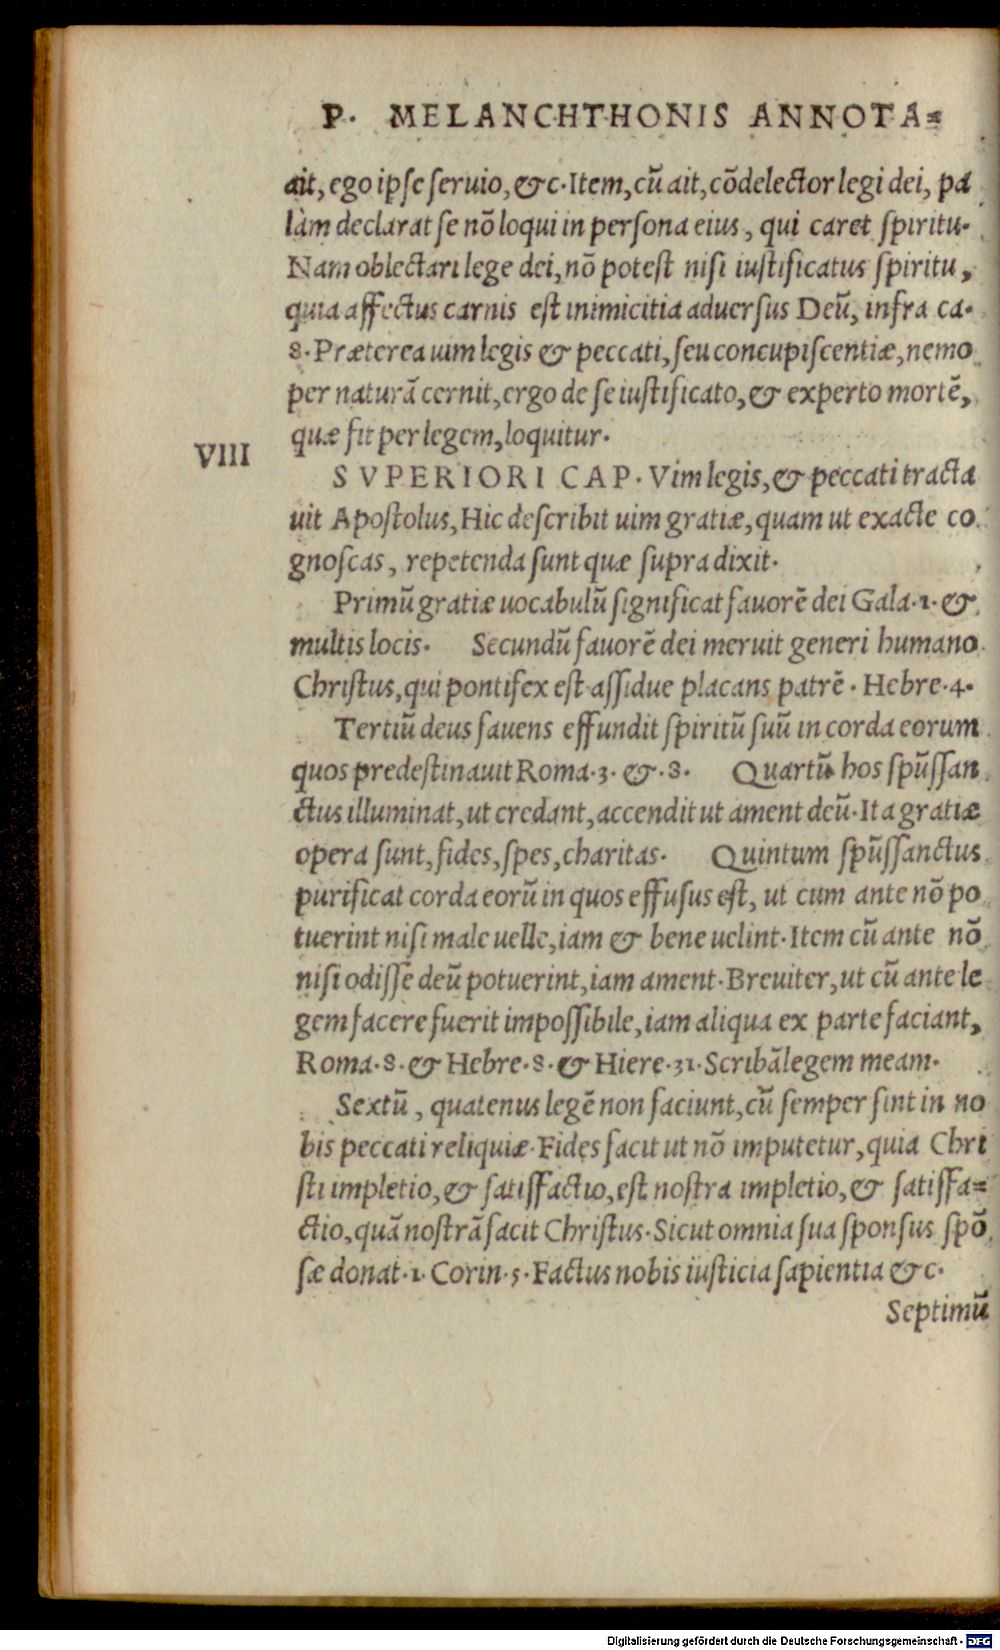 P. MELANCHTHONIS ANNOTA=
ait, ego ipse seruio, &c. Item, cū ait, cōdelector legi dei, pa
làm declarat se nō loqui in persona eius, qui caret spiritu.
Nam oblectari lege dei, nō potest nisi iustificatus spiritu,
quia affectus carnis est inimicitia aduersus Deū, infra ca.
8. Præterea uim legis & peccati, seu concupiscentiæ, nemo
per naturā cernit, ergo de se iustificato, & experto mortē,
quæ fit per legem, loquitur.
VIII
SVPERIORI CAP. Vim legis, & peccati tracta
uit Apostolus, Hic describit uim gratiæ, quam ut exacte co
gnoscas, repetenda sunt quæ supra dixit.
Primū gratiæ uocabulū significat fauorē dei Gala. 1. &
multis locis. Secundū fauorē dei meruit generi humano
Christus, qui pontifex est assidue placans patrē. Hebre. 4.
Tertiū deus fauens effundit spiritū suū in corda eorum
quos predestinauit Roma. 3. &. 8. Quartū hos spūssan
ctus illuminat, ut credant, accendit ut ament deū. Ita gratiæ
opera sunt, fides, spes, charitas. Quintum spūssanctus
purificat corda eorū in quos effusus est, ut cum ante nō po
tuerint nisi male uelle, iam & bene uelint. Item cū ante nō
nisi odisse deū potuerint, iam ament. Breuiter, ut cū ante le
gem facere fuerit impossibile, iam aliqua ex parte faciant,
Roma. 8. & Hebre. 8. & Hiere. 31. Scribā legem meam.
Sextū, quatenus legē non faciunt, cū semper sint in no
bis peccati reliquiæ. Fides facit ut nō imputetur, quia Chri
sti impletio, & satisfactio, est nostra impletio, & satisfa=
ctio, quā nostrā facit Christus. Sicut omnia sua sponsus spō
sæ donat. 1. Corin. 5. Factus nobis iusticia sapientia &c.
Septimū
Digitalisierung gefördert durch die Deutsche Forschungsgemeinschaft - DFG